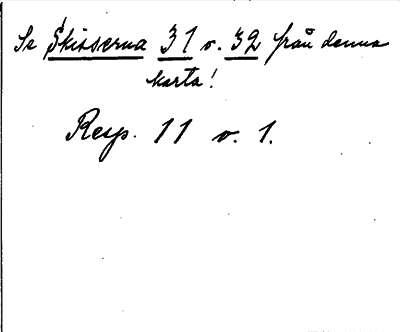 Se Skisserna 31 o. 32 från denna
karta!
Resp. 11 o. 1.